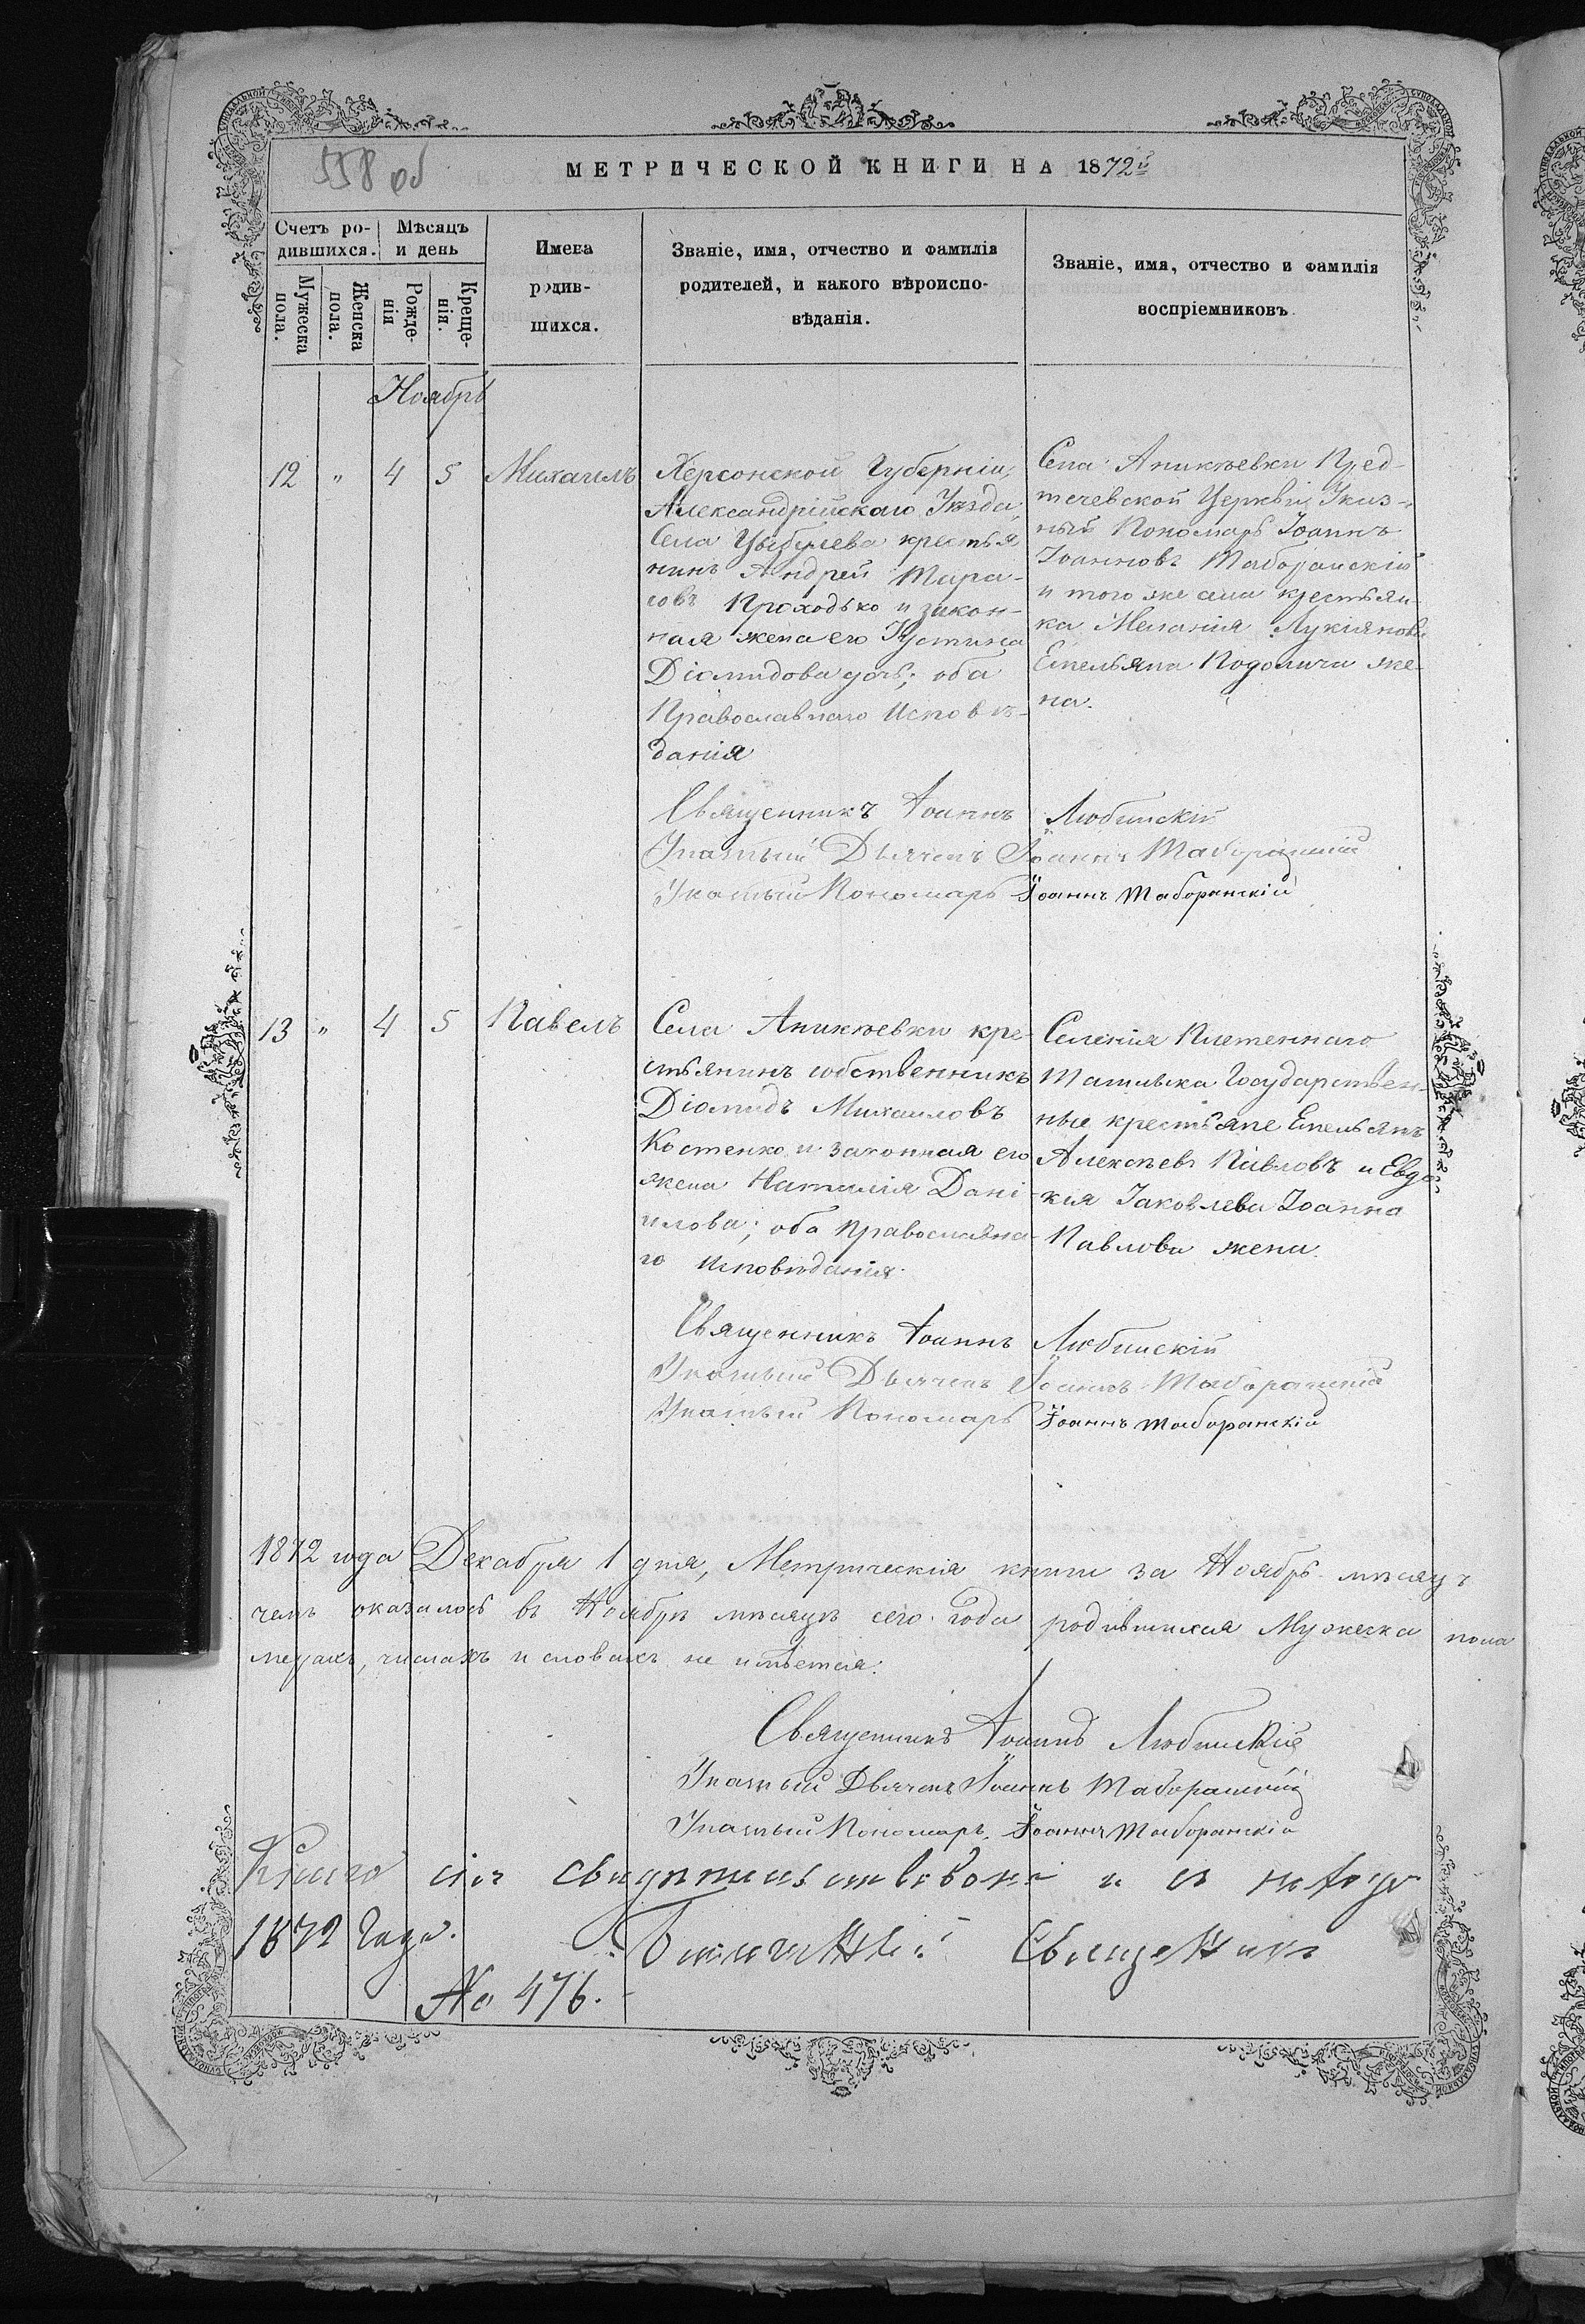 558 об
МЕТРИЧЕСКОЙ КНИГИ НА 1872й
Счетъ ро-
дившихся.
Мѣсяцъ
и день
Имена
родив-
шихся.
Званіе, имя, отчество и фамилія
родителей, и какого вѣроиспо-
вѣданія.
Званіе, имя, отчество и фамилія
воспріемниковъ.
Мужеска
пола.
Женска
пола.
Рожде-
нія
Креще-
нія.
Ноябрь
12 " 4 5 Михаилъ
Херсонской Губерніи,
Александрійскаго Уѣзда,
Села Цыбулева крестья
нинъ Андрей Тара-
совъ Проходько и закон-
ная жена его Устина
Діомидова дочь; оба
Православнаго Исповѣ-
данія
Села Аникѣевки Пред-
течевской Церкви Указ-
ный Пономарь Іоаннъ
Іоанновъ Таборанскій
и того же села крестьян-
ка Меланія Лукіянова
Емельяна Подолича же-
на.
Священникъ Іоаннъ Любинскій
Указный Дьячекъ Іоаннъ Таборанскій
Указный Пономарь Іоаннъ Таборанскій
13 " 4 5 Павелъ
Села Аникѣевки кре-
стьянинъ собственникъ
Діомидъ Михаиловъ
Костенко и законная его
жена Наталія Дані-
илова; оба Православна-
го Исповѣданія.
Селенія Плетеннаго
Ташлыка Государствен-
ные крестьяне Емельянъ
Алексѣевъ Павловъ и Евдо-
кія Іаковлева Іоанна
Павлова жена.
Священникъ Іоаннъ Любинскій
Указный Дьячекъ Іоаннъ Таборанскій
Указный Пономарь Іоаннъ Таборанскій
1872 года Декабря 1 дня, Метрическія книги за Ноябрь мѣсяцъ
чемъ оказалось въ Ноябрѣ мѣсяцѣ сего года родившихся Мужеска пола
мерахъ, числахъ и словахъ не имѣется.
Священникъ Іоаннъ Любинскій
Указный Дьячекъ Іоаннъ Таборанскій
Указный Пономарь Іоаннъ Таборанскій
Книга сія свидѣтельствована и
1872 Года. Благочинный Священникъ
No 476.